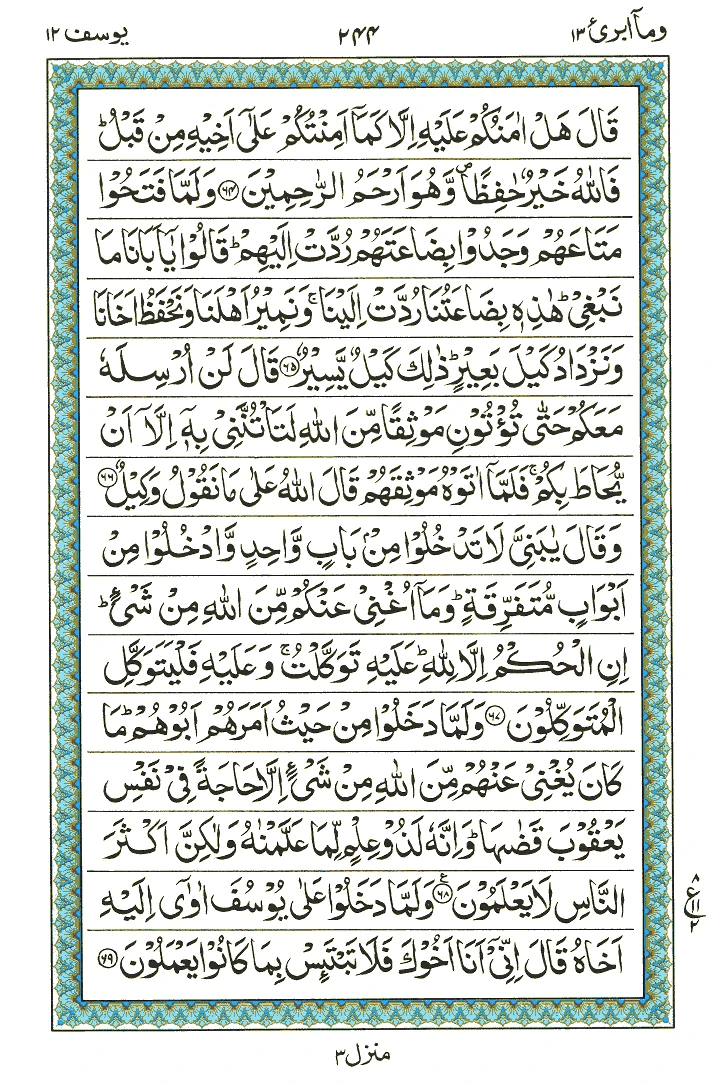 وماۤ ابرئ ١٣
٢٤٤
يوسف ١٢
قَالَ هَلْ اٰمَنُكُمْ عَلَيْهِ اِلَّا كَمَاۤ اَمِنْتُكُمْ عَلٰۤى اَخِيْهِ مِنْ قَبْلُ ؕ
فَاللّٰهُ خَيْرٌ حٰفِظًا ۪ وَّهُوَ اَرْحَمُ الرّٰحِمِيْنَ ﴿۶۴﴾ وَلَمَّا فَتَحُوْا
مَتَاعَهُمْ وَجَدُوْا بِضَاعَتَهُمْ رُدَّتْ اِلَيْهِمْ ؕ قَالُوْا يٰۤاَبَانَا مَا
نَبْغِىْ ؕ هٰذِهٖ بِضَاعَتُنَا رُدَّتْ اِلَيْنَا ۚ وَنَمِيْرُ اَهْلَنَا وَنَحْفَظُ اَخَانَا
وَنَزْدَادُ كَيْلَ بَعِيْرٍ ؕ ذٰلِكَ كَيْلٌ يَّسِيْرٌ ﴿۶۵﴾ قَالَ لَنْ اُرْسِلَهٗ
مَعَكُمْ حَتّٰى تُؤْتُوْنِ مَوْثِقًا مِّنَ اللّٰهِ لَتَاْتُنَّنِىْ بِهٖۤ اِلَّاۤ اَنْ
يُّحَاطَ بِكُمْ ۚ فَلَمَّاۤ اٰتَوْهُ مَوْثِقَهُمْ قَالَ اللّٰهُ عَلٰى مَا نَقُوْلُ وَكِيْلٌ ﴿۶۶﴾
وَقَالَ يٰبَنِىَّ لَا تَدْخُلُوْا مِنْۢ بَابٍ وَّاحِدٍ وَّادْخُلُوْا مِنْ
اَبْوَابٍ مُّتَفَرِّقَةٍ ؕ وَمَاۤ اُغْنِىْ عَنْكُمْ مِّنَ اللّٰهِ مِنْ شَىْءٍ ؕ
اِنِ الْحُكْمُ اِلَّا لِلّٰهِ ؕ عَلَيْهِ تَوَكَّلْتُ ۚ وَعَلَيْهِ فَلْيَتَوَكَّلِ
الْمُتَوَكِّلُوْنَ ﴿۶۷﴾ وَلَمَّا دَخَلُوْا مِنْ حَيْثُ اَمَرَهُمْ اَبُوْهُمْ ؕ مَا
كَانَ يُغْنِىْ عَنْهُمْ مِّنَ اللّٰهِ مِنْ شَىْءٍ اِلَّا حَاجَةً فِىْ نَفْسِ
يَعْقُوْبَ قَضٰىهَا ؕ وَاِنَّهٗ لَذُوْ عِلْمٍ لِّمَا عَلَّمْنٰهُ وَلٰكِنَّ اَكْثَرَ
النَّاسِ لَا يَعْلَمُوْنَ ﴿۶۸﴾ ع وَلَمَّا دَخَلُوْا عَلٰى يُوْسُفَ اٰوٰۤى اِلَيْهِ
اَخَاهُ قَالَ اِنِّىْۤ اَنَا اَخُوْكَ فَلَا تَبْتَٮِٕسْ بِمَا كَانُوْا يَعْمَلُوْنَ ﴿۶۹﴾
٨
ع ١١
٢
منزل ٣